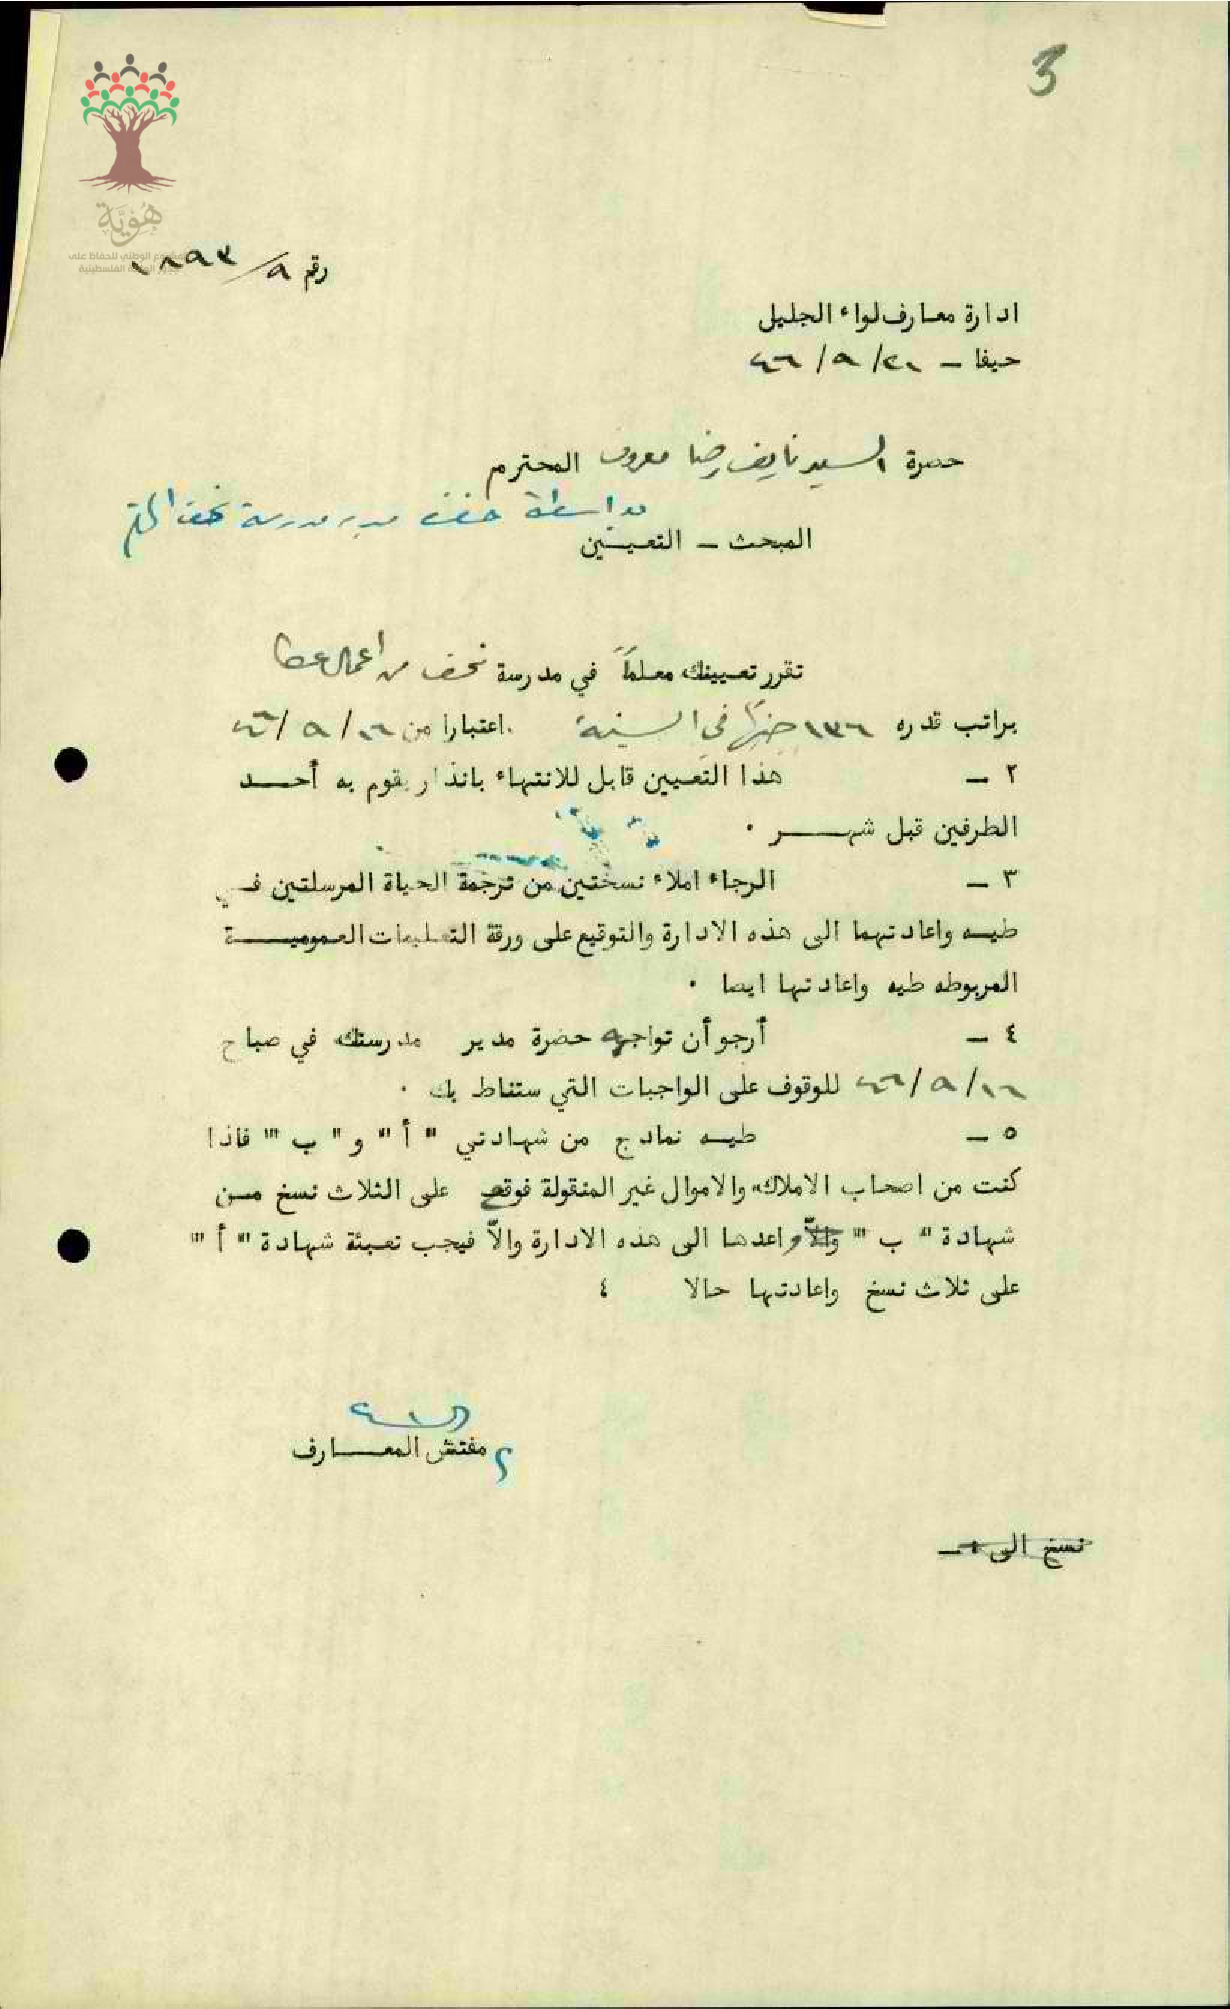 3
هُوِيَّة
المشروع الوطني للحفاظ على
جذور العائلة الفلسطينية
رقم ٩/١٨٩٣
ادارة معارف لواء الجليل
حيفا – ٢١/٩/٤٦
حضرة السيد نايف رضا معروف المحترم
بواسطة حضرة مدير مدرسة نحف المحترم
المبحث – التعيين
تقرر تعيينك معلماً في مدرسة نحف من اعمال عكا
براتب قدره ١٣٦ جنيهاً في السنة . اعتبارا من ١٦/٩/٤٦
٢ – هذا التعيين قابل للانتهاء بانذار يقوم به أحد
الطرفين قبل شهر .
٣ – الرجاء املاء نسختين من ترجمة الحياة المرسلتين في
طيه واعادتهما الى هذه الادارة والتوقيع على ورقة التعليمات العمومية
المربوطه طيه واعادتها ايضا .
٤ – أرجو أن تواجه حضرة مدير مدرستك في صباح
١٦/٩/٤٦ للوقوف على الواجبات التي ستناط بك .
٥ – طيه نماذج من شهادتي " أ " و " ب " فاذا
كنت من اصحاب الاملاك والاموال غير المنقولة فوقع على الثلاث نسخ من
شهادة " ب " واعدها الى هذه الادارة والاّ فيجب تعبئة شهادة " أ "
على ثلاث نسخ واعادتها حالا ٤
مفتش المعارف
نسخ الى